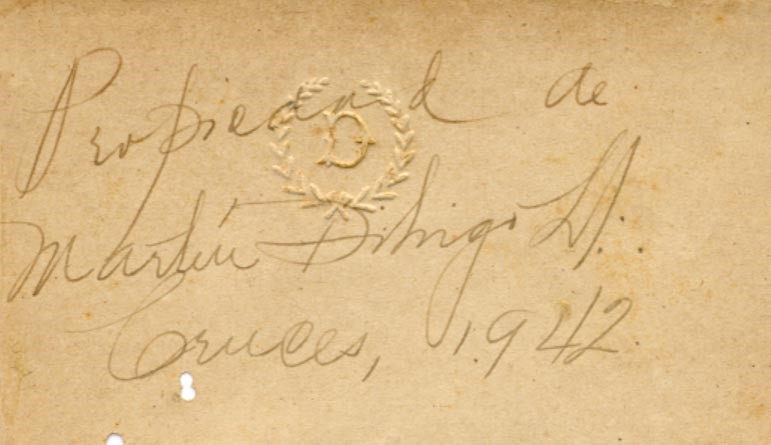 Propiedad de
D
Martín Dihigo Ll.
Cruces, 1942.